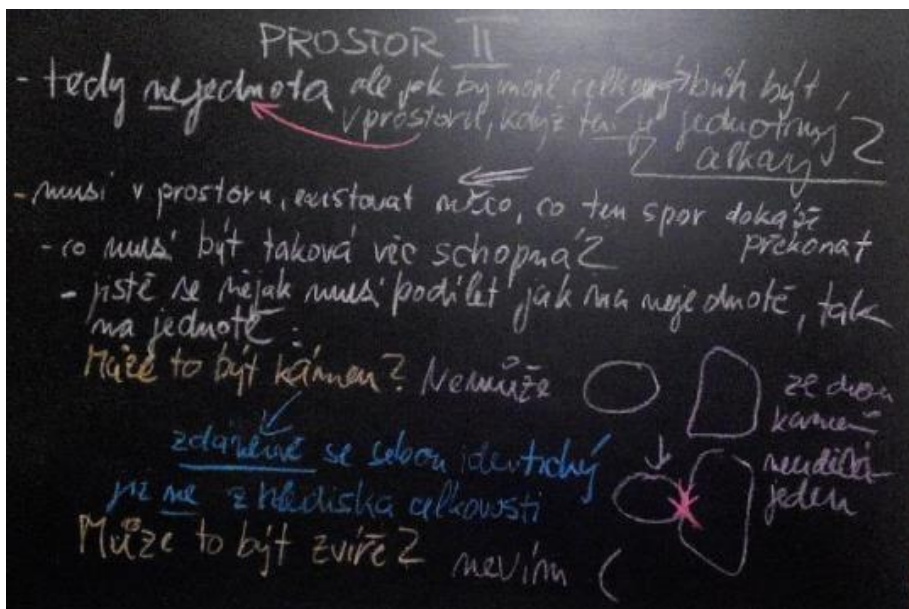 PROSTOR II
- tedy nejednota ale jak by mohl celkový bůh být
v prostoru, když ten je jednotný
celkový?
- musí v prostoru, existovat něco, co ten spor dokáže
překonat
- co musí být taková věc schopná?
- jistě se nějak musí podílet jak na nejednotě, tak
na jednotě:
Může to být kámen? Nemůže
ze dvou
kamenů
neudělá
jeden
zdánlivě se sebou identický
již ne z hlediska celkovosti
Může to být zvíře? nevím (